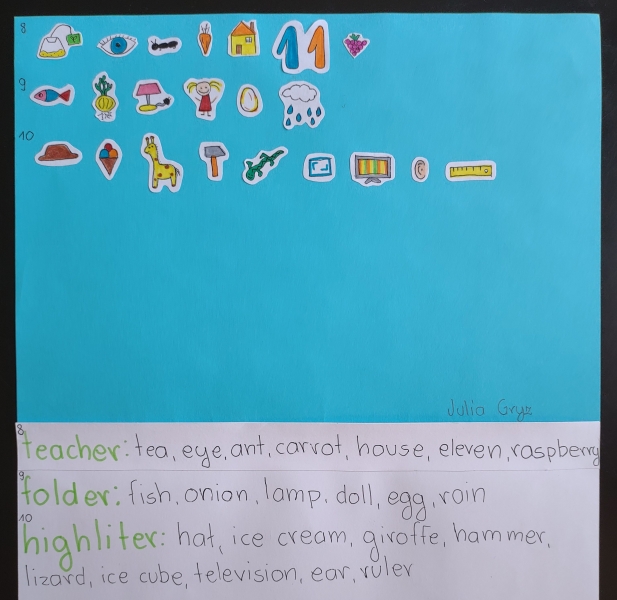 8
11
9
10
Julia Gryz
8
teacher: tea, eye, ant, carrot, house, eleven, raspberry
9
folder: fish, onion, lamp, doll, egg, rain
10
highliter: hat, ice cream, giroffe, hammer,
lizard, ice cube, television, ear, ruler